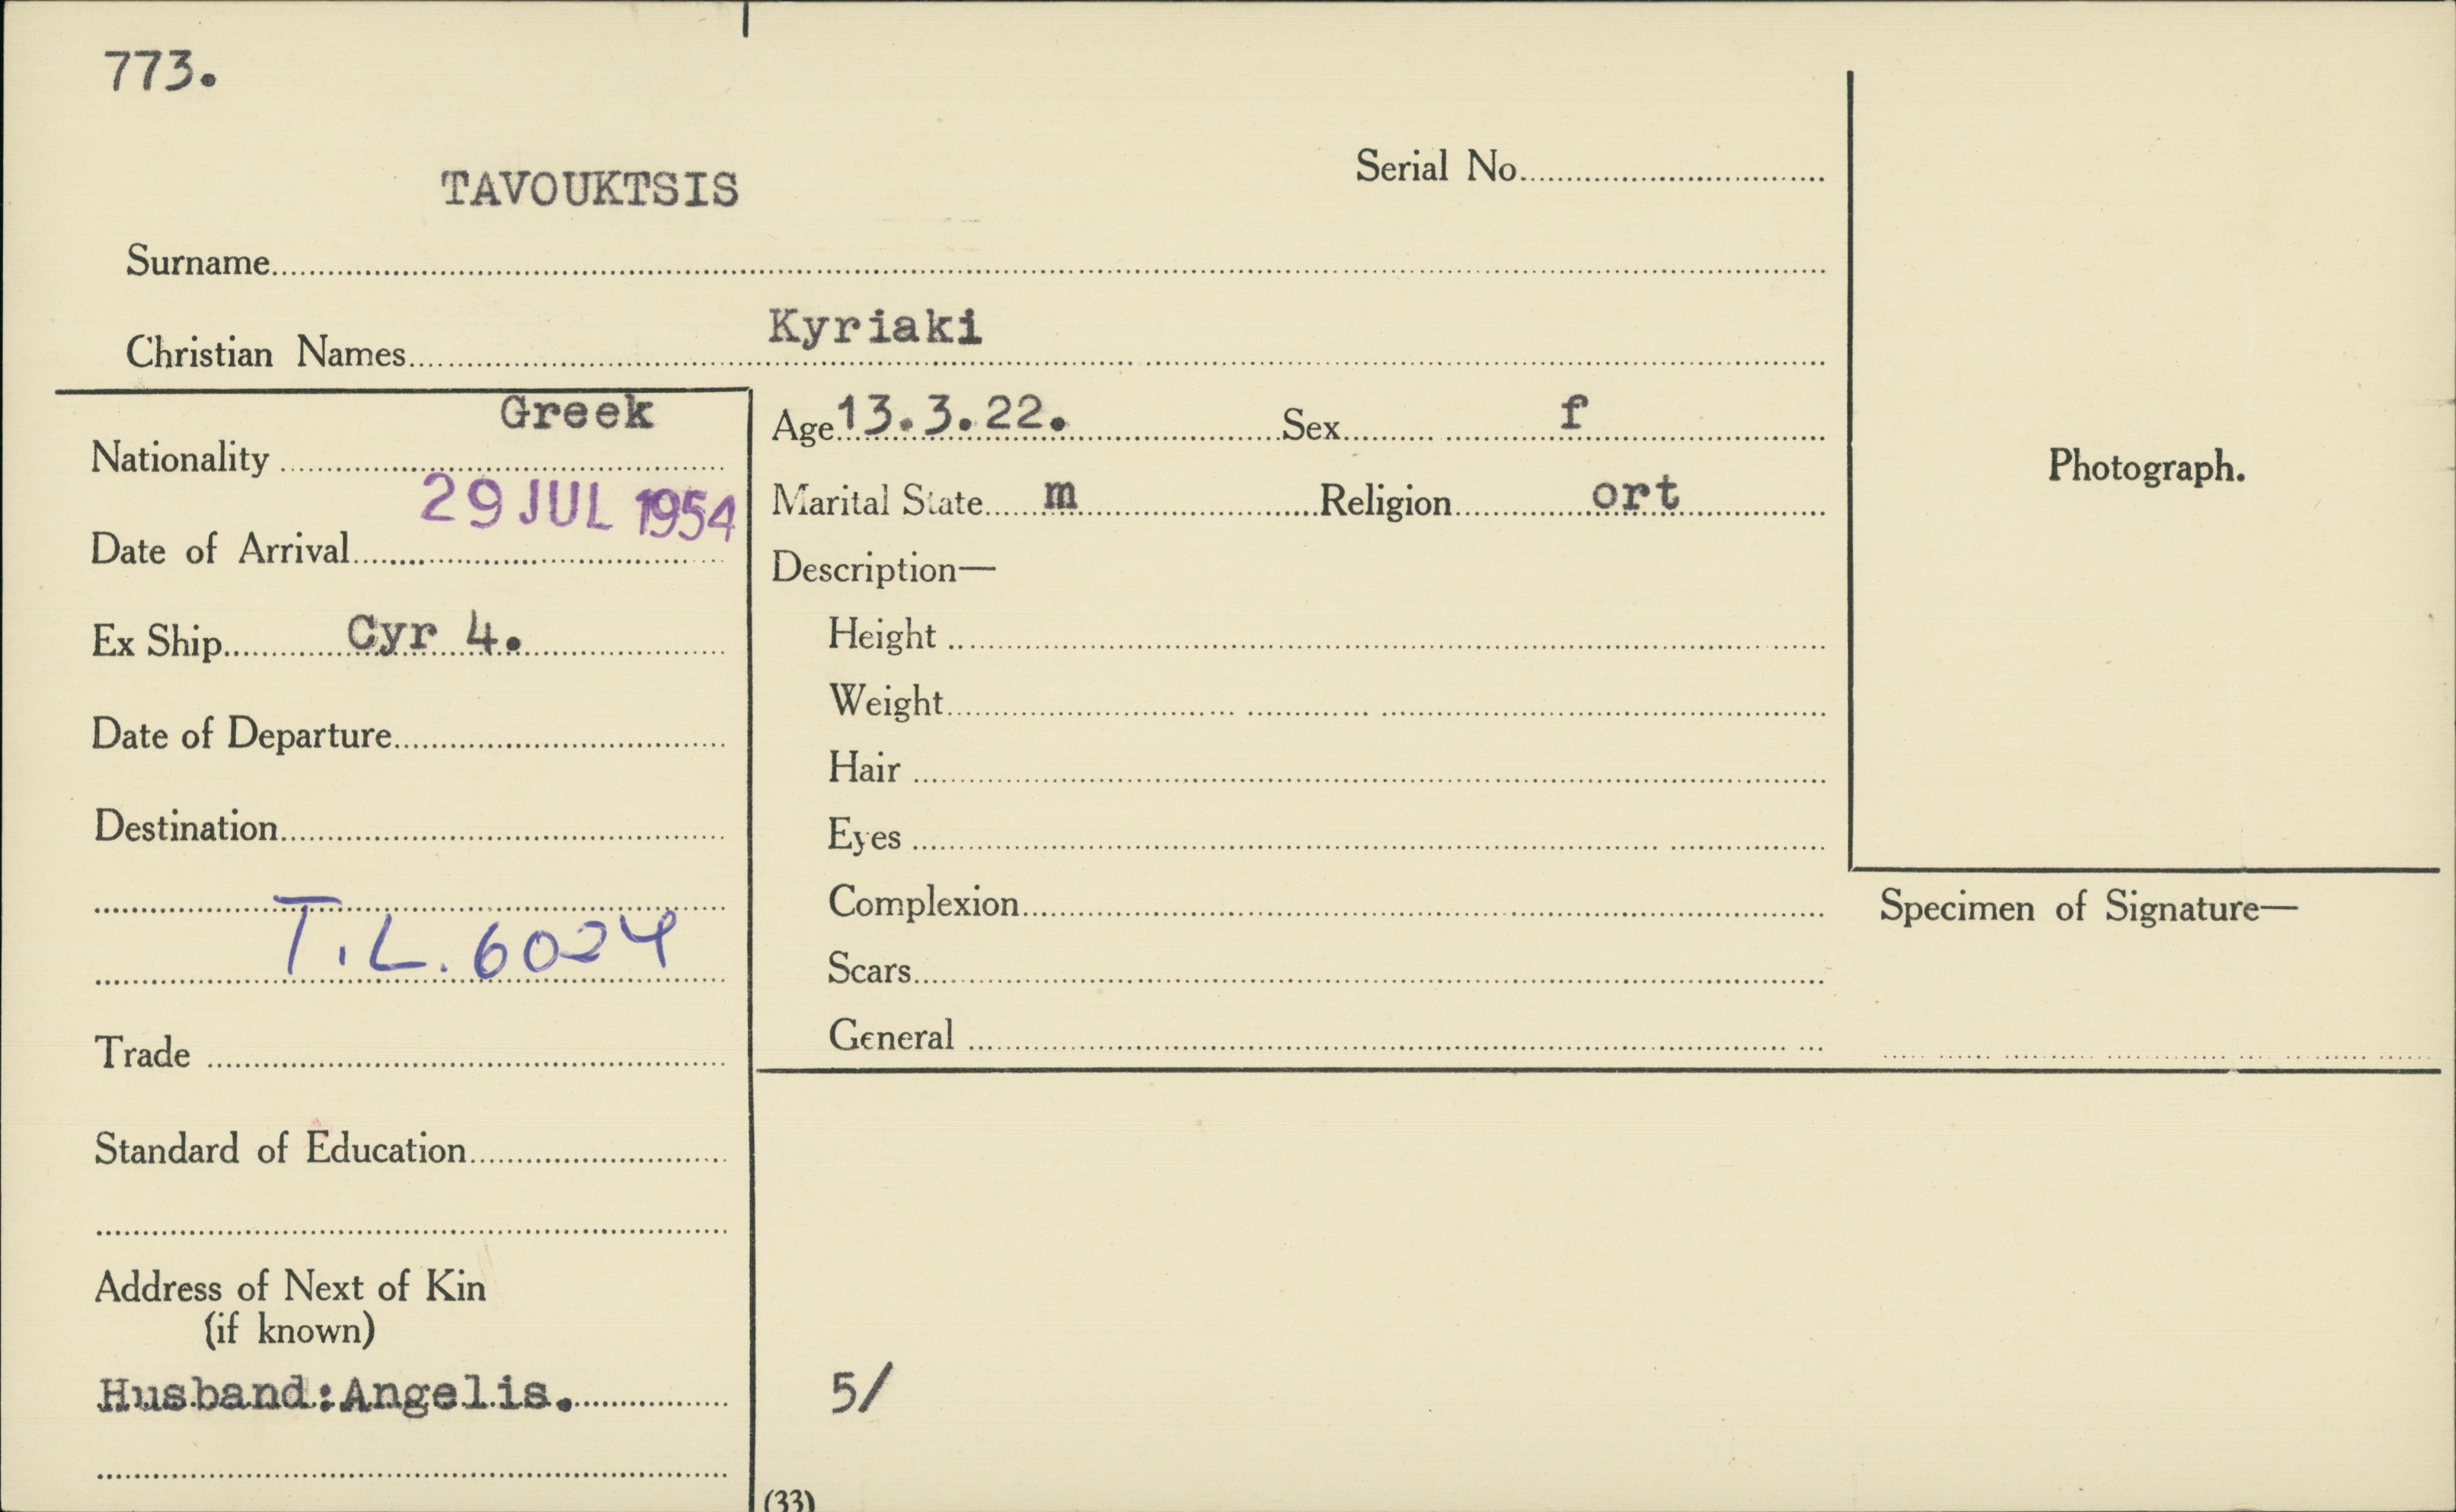 773.
TAVOUKTSIS
Serial No.
Surname
Christian Names Kyriaki
Nationality Greek
Date of Arrival 29 JUL 1954
Ex Ship Cyr 4.
Date of Departure
Destination
T.L. 6024
Trade
Standard of Education
Address of Next of Kin
(if known)
Husband:Angelis.
Age 13.3.22. Sex f
Marital State m Religion ort
Description—
Height
Weight
Hair
Eyes
Complexion
Scars
General
5/
(33)
Photograph.
Specimen of Signature—